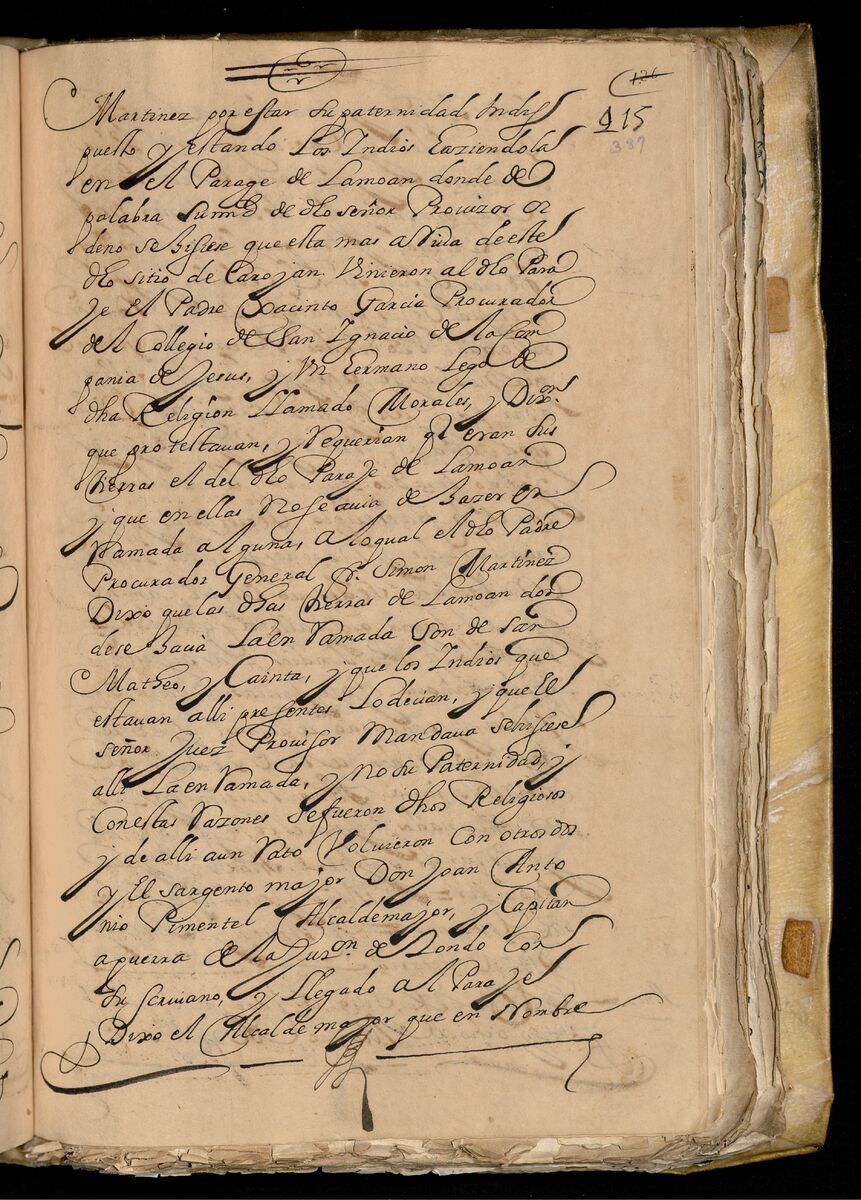 126
115
387
Martinez por estar su paternidad Indis
puesto y estando Los Indios Eaziendola
en el Parage de Lamoan donde de
palabra su md de dho señor Provizor or
deno se hisiese que esta mas a Vida de este
dho sitio de Carojan. Vinieron al dho Para
je el Padre Xacinto Garcia Procurador
del Collegio de San Ignacio de la Com
pania de Jesus, y Un Eermano Lego de
dha Religion Llamado Morales, y Dixon.
que protestavan, y Requerian q.e eran sus
tierras el del dho Paraje de Lamoan
y que en ellas No se avia de Hazer en
Ramada alguna, a lo qual el dho Padre
Procurador General fr. Simon Martinez
Dixo que las dhas tierras de Lamoan don
de se Hacia La en Ramada Son de san
Matheo, y Cainta, y que los Indios que
estavan alli presentes Lo decian, y que El
señor Juez Provisor Mandava se hisiese
alli La en Ramada, y No su Paternidad, y
Con estas Razones se fueron dhos Religiosos
y de alli a un Rato Volvieron Con otros dos
y El sargento major Don Joan Anto
nio Pimentel Alcalde major, y Capitan
a guerra de la Jur.on de Tondo Con
su scrivano, y Llegado al Paraje
Dixo el Alcalde major que en Nombre